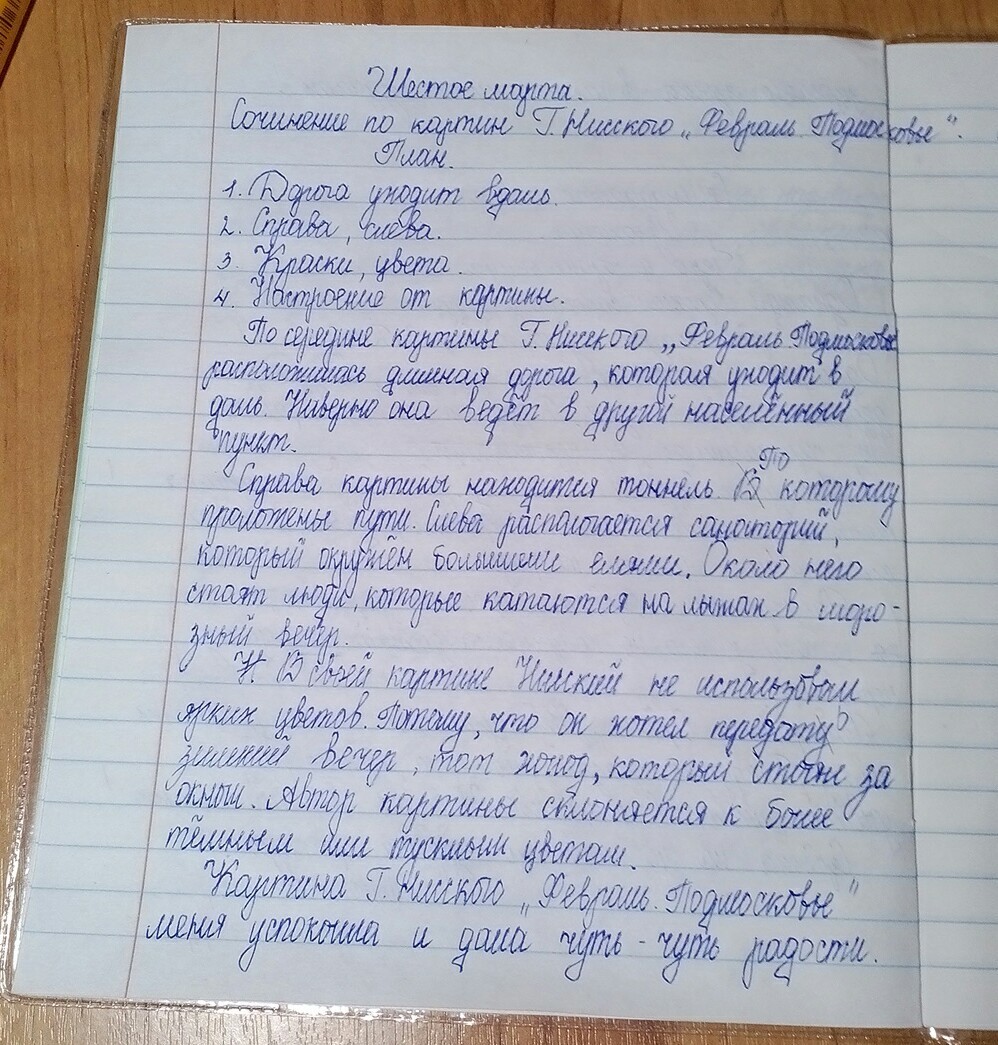 Шестое марта.
Сочинение по картин Г. Нисского „Февраль. Подмосковье“.
План.
1. Дорога уходит вдаль.
2. Справа, слева.
3. Краски, цвета.
4. Настроение от картины.
По середине картины Г. Нисского „Февраль. Подмосковье
расположилась длинная дорога, которая уходит в
даль. Наверно она ведёт в другой населённый
пункт.
Справа картины находится тоннель. По которому
проложены пути. Слева располагается санаторий,
который окружён большими елями. Около него
стоят люди, которые катаются на лыжах в моро-
зный вечер.
В своей картине Нисский не использовал
ярких цветов. Потому, что он хотел передать
зимний вечер, тот холод, который стоял за
окном. Автор картины склоняется к более
тёмным или тусклым цветам.
Картина Г. Нисского „Февраль. Подмосковье“
меня успокоила и дала чуть-чуть радости.